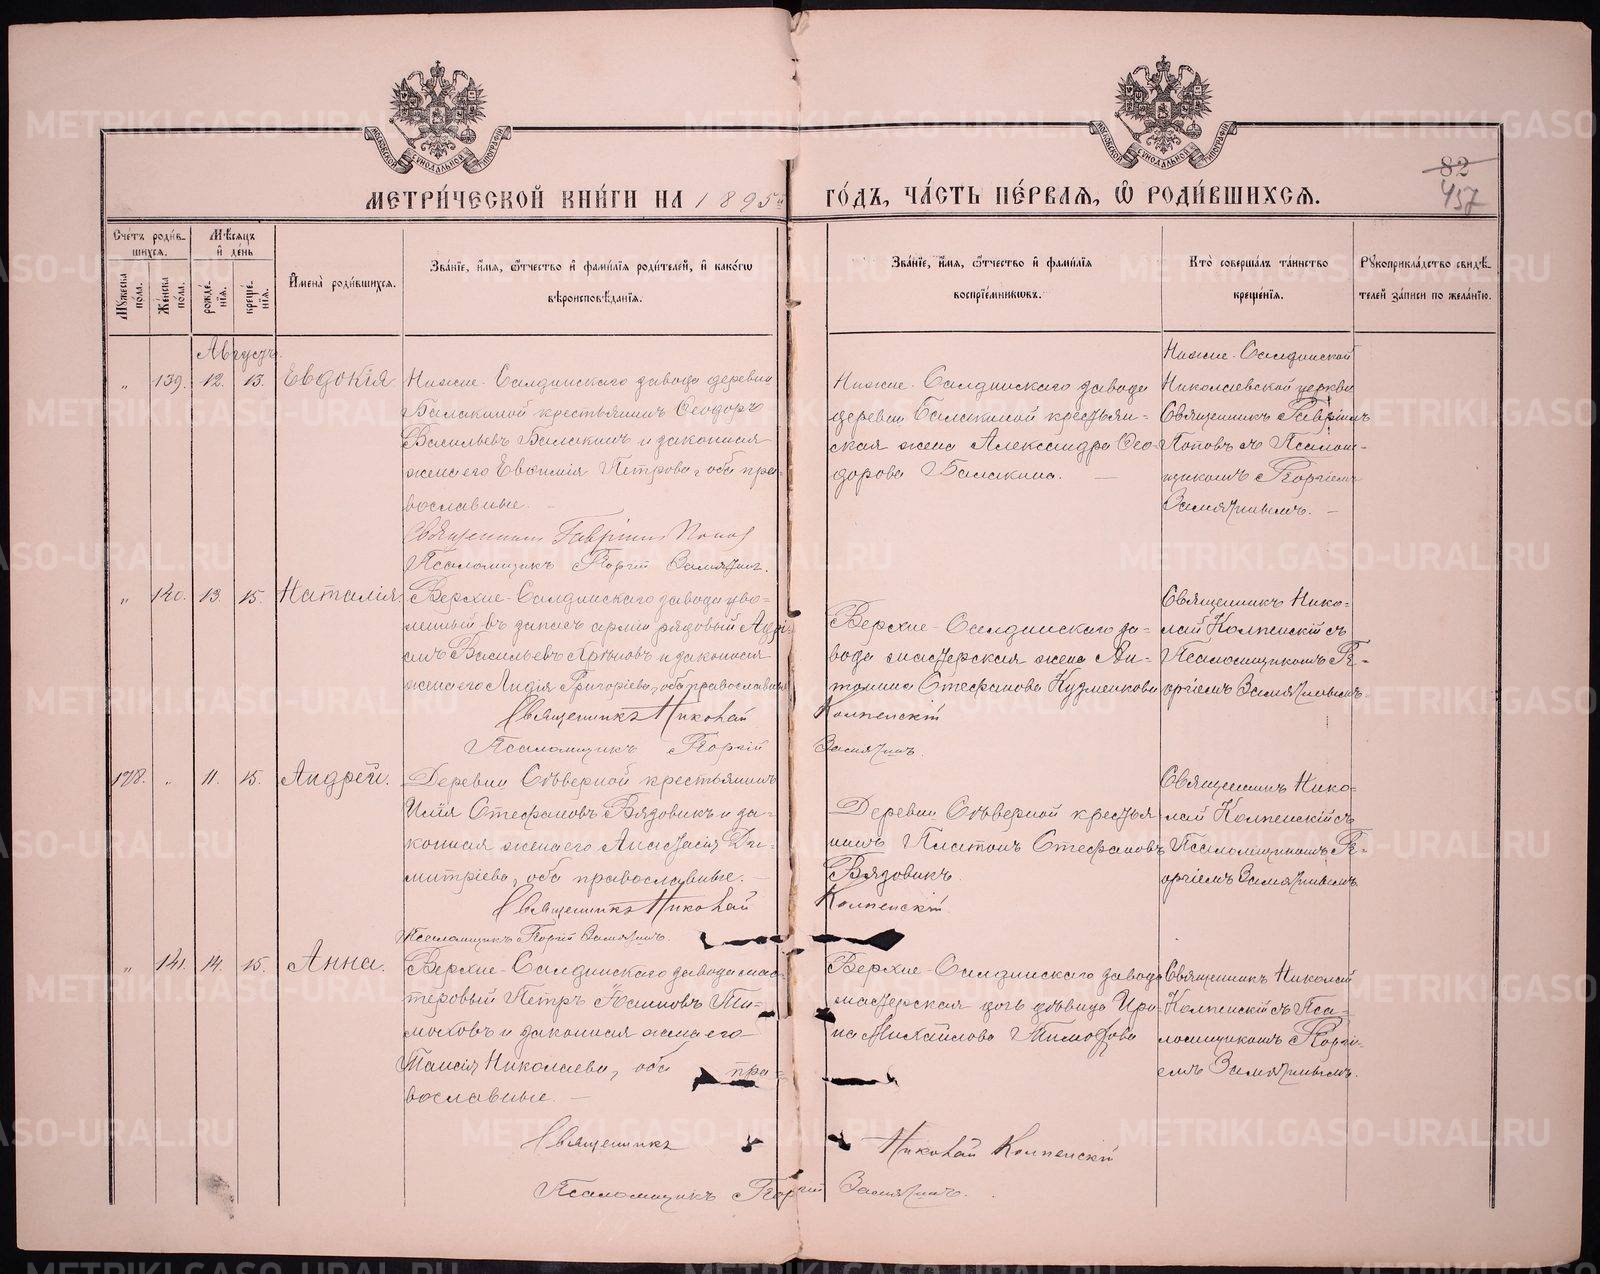 МЕТРИ́ЧЕСКОЙ КНИ́ГИ НА 1895й ГО́ДЪ, ЧА́СТЬ ПЕ́РВАЯ, Ѡ РОДИ́ВШИХСЯ.
82
457
Сче́тъ роди́в-
шихся.
Му́жеска пола.
Же́нска пола.
Мѣ́сяцъ
и҆ де́нь
рожде́-
нїѧ.
креще́-
нїѧ.
И҆мена̀ роди́вшихся.
Зва́нїе, и҆́мѧ, ѻ҆́тчество и҆ фами́лїѧ роди́телей, и҆ како́гѡ
вѣроисповѣ́данїѧ.
Зва́нїе, и҆́мѧ, ѻ҆́тчество и҆ фами́лїѧ
воспрїе́мникѡвъ.
Кто̀ соверша́лъ та́инство
креще́нїѧ.
Рꙋкоприкла́дство свидѣ́-
телей за́писи по жела́нїю.
Августъ.
" 139. 12. 13. Евдокія.
Нижне-Салдинскаго завода деревни
Балакиной крестьянинъ Ѳеодоръ
Васильевъ Балакинъ и законная
жена его Евѳимія Петрова, оба пра-
вославные. –
Священникъ Гавріилъ Поповъ
Псаломщикъ Георгій Замятинъ.
Нижне-Салдинскаго завода
деревни Балакиной крестьян-
ская жена Александра Ѳео-
дорова Балакина. –
Нижне-Салдинской
Николаевской церкви
Священникъ Гавріилъ
Поповъ съ Псалом-
щикомъ Георгіемъ
Замятинымъ. –
" 140. 13. 15. Наталія.
Верхне-Салдинскаго завода уво-
ленный въ запасъ арміи рядовый
Васильевъ и законная
жена его Лидія Григоріева, оба православные
Священникъ Николай Колпенскій
Псаломщикъ Георгій Замятинъ.
Верхне-Салдинскаго за-
вода мастерская жена Ан-
тонина Стефанова Кузменкова
Священникъ Нико-
лай Колпенскій съ
Псаломщикомъ Ге-
оргіемъ Замятинымъ.
178. " 11. 15. Андрей.
Деревни Сѣверной крестьянинъ
Илія Стефановъ Вядовикъ и за-
конная жена его Анастасія Ди-
митріева, оба православные. –
Священникъ Николай Колпенскій
Псаломщикъ Георгій Замятинъ.
Деревни Сѣверной крестья-
нинъ Платонъ Стефановъ
Вядовикъ.
Священникъ Нико-
лай Колпенскій съ
Псаломщикомъ Ге-
оргіемъ Замятинымъ.
" 141. 14. 15. Анна.
Верхне-Салдинскаго завода мас-
теровый Петръ Ти-
моховъ и законная жена его
Таисія Николаева, оба пра-
вославные. –
Священникъ Николай Колпенскій
Псаломщикъ Георгій Замятинъ.
Верхне-Салдинскаго завода
мастерская дочь дѣвица Ири-
на Михайлова Тимофова
Священникъ Николай
Колпенскій съ Пса-
ломщикомъ Георгі-
емъ Замятинымъ.
METRIKI.GASO-URAL.RU